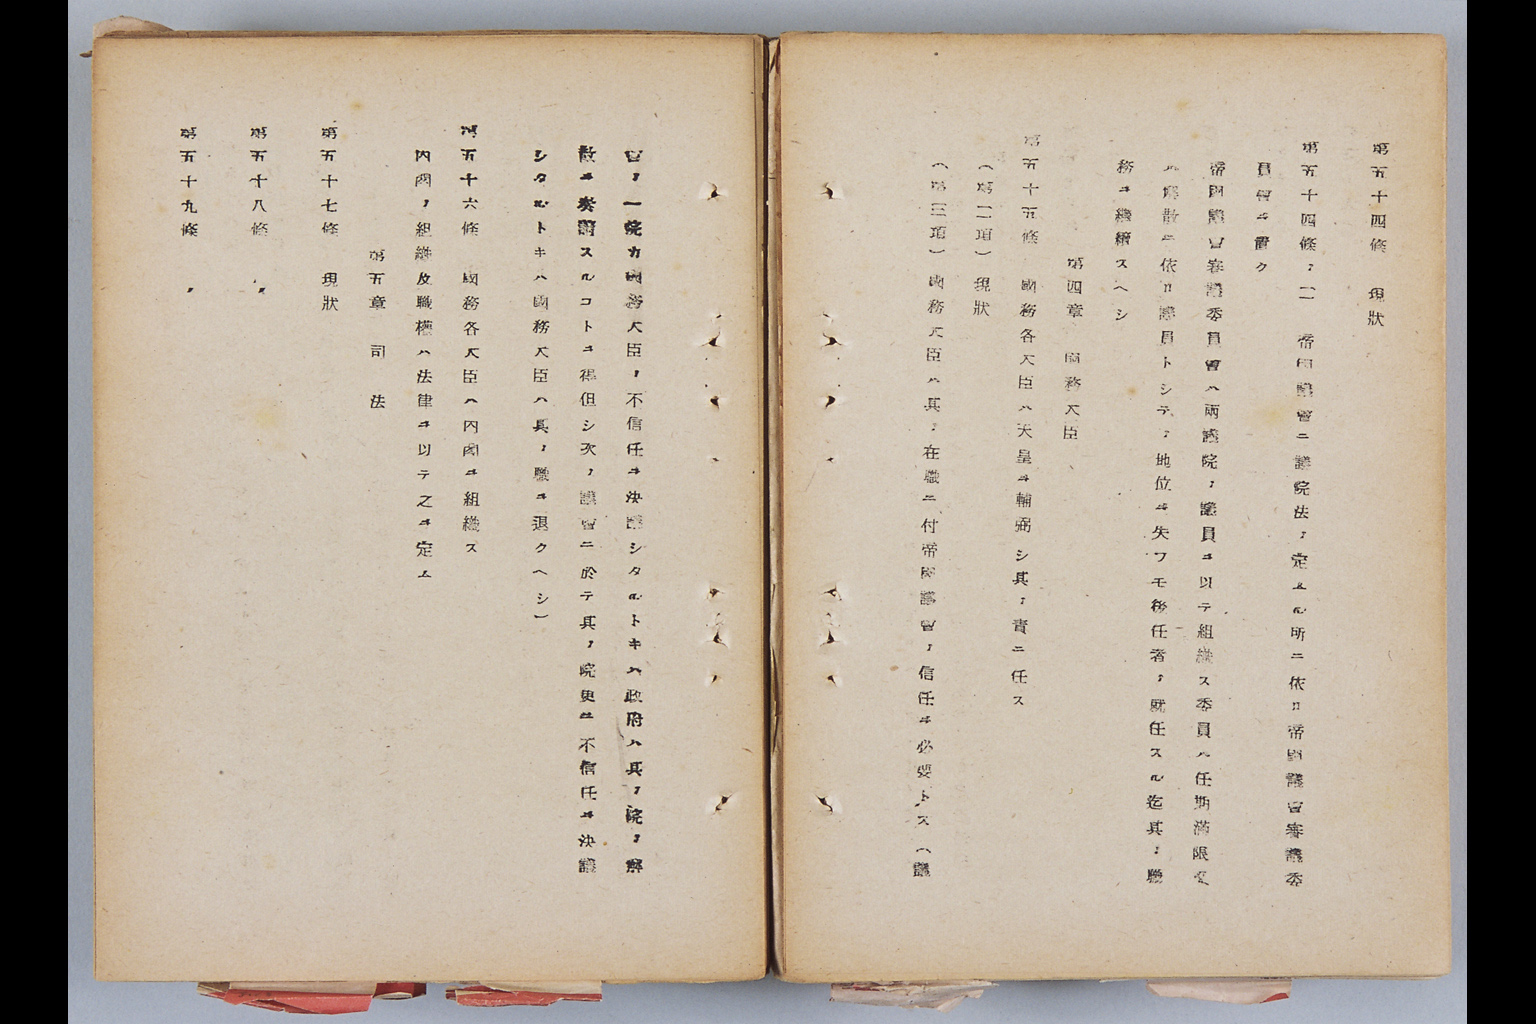 第五十四條　現狀
第五十四條ノ二　帝國議會ニ議院法ノ定ムル所ニ依リ帝國議會審議委
員會ヲ置ク
帝國議會審議委員會ハ兩議院ノ議員ヲ以テ組織ス委員ハ任期滿限又
ハ解散ニ依リ議員トシテノ地位ヲ失フモ後任者ノ就任スル迄其ノ職
務ヲ繼續スヘシ
第四章　國務大臣
第五十五條　國務各大臣ハ天皇ヲ輔弼シ其ノ責ニ任ス
（第二項）現狀
（第三項）國務大臣ハ其ノ在職ニ付帝國議會ノ信任ヲ必要トス（議
會ノ一院カ國務大臣ノ不信任ヲ決議シタルトキハ政府ハ其ノ院ノ解
散ヲ奏請スルコトヲ得但シ次ノ議會ニ於テ其ノ院更ニ不信任ヲ決議
シタルトキハ國務大臣ハ其ノ職ヲ退クヘシ）
第五十六條　國務各大臣ハ內閣ヲ組織ス
內閣ノ組織及職權ハ法律ヲ以テ之ヲ定ム
第五章　司法
第五十七條　現狀
第五十八條　〃
第五十九條　〃